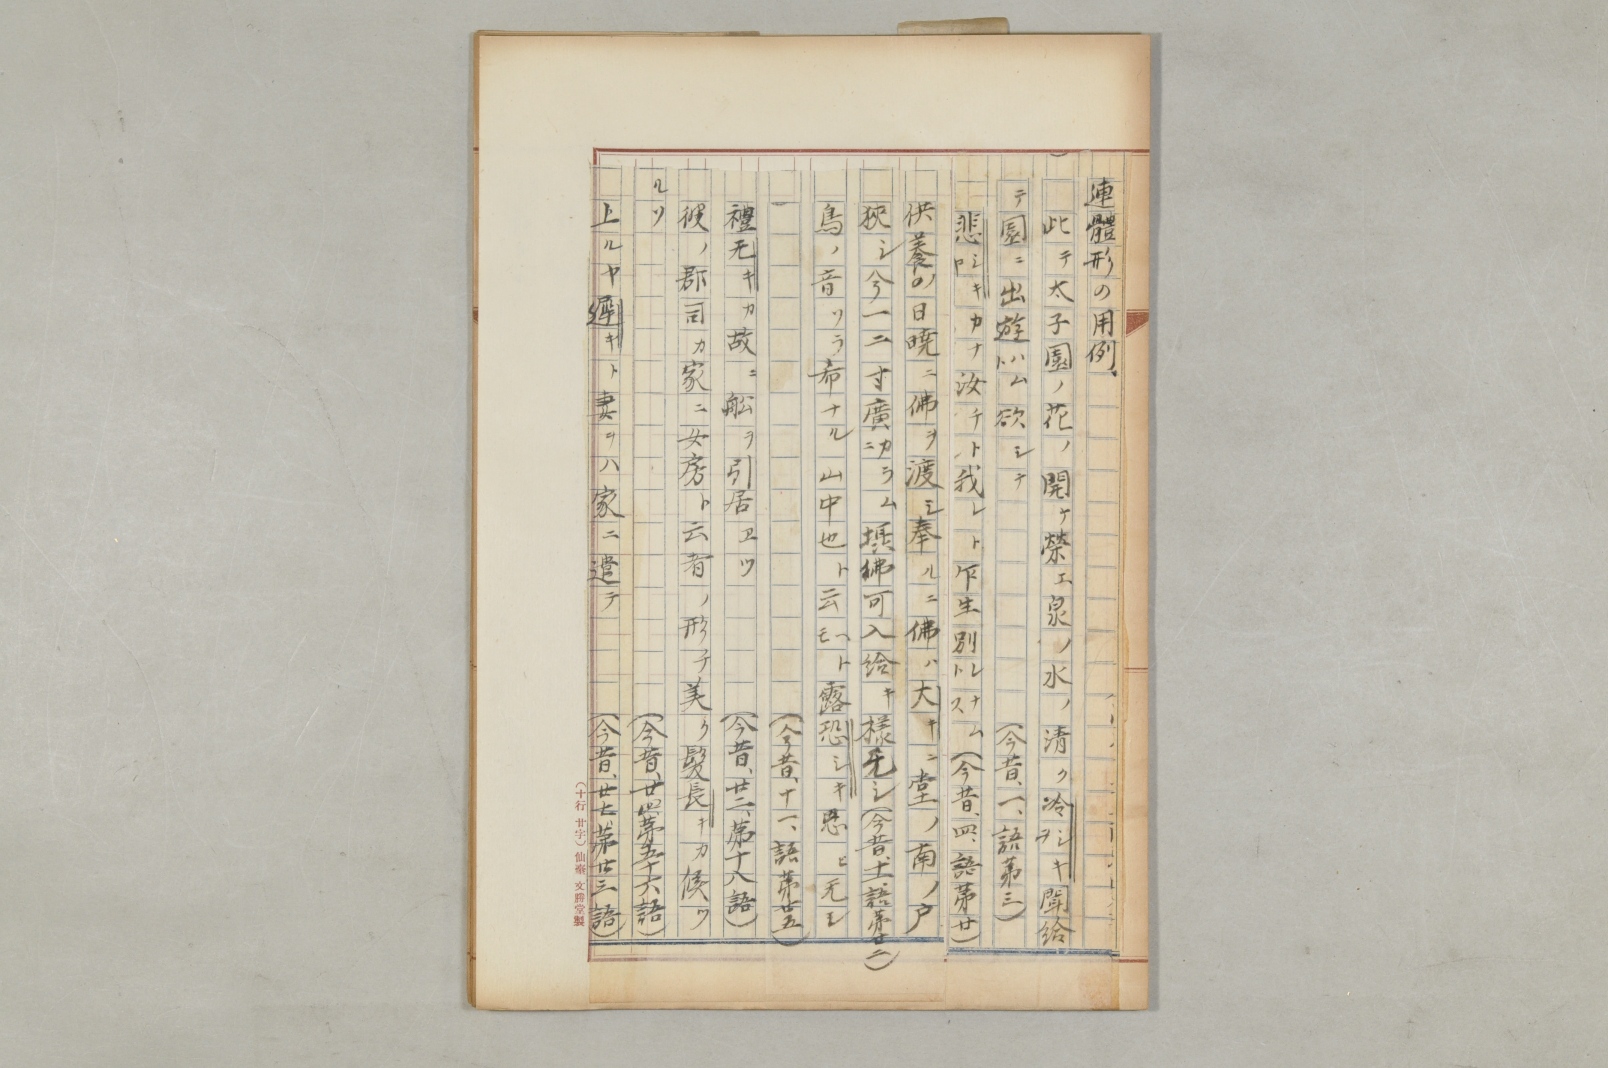 連體形の用例、
此テ太子園ノ花ノ開ケ榮エ泉ノ水ノ清ク冷シキヲ聞給
テ園ニ出遊ハムト欲シテ（今昔、一、語第三）
悲シキカヤナ汝チト我レト乍生別レナムトス（今昔、四、語第廿）
供養の日暁ニ佛ヲ渡シ奉ルニ佛ハ大キニ堂ノ南ノ戸
狹シ今一二寸廣カラムニ佛可入給キ様无シ（今昔、十二、語第廿二）
鳥ノ音ソラ希ナル山中也ト云ヘトモ露恐シキ思ヒ无シ
（今昔、十一、語第廿五）
禮无キカ故ニ船ヲ引居ヱツ（今昔、廿二、第十八語）
彼ノ郡司カ家ニ女房ト云者ノ形チ美ク髮長キカ候ツ
ルソ（今昔、廿四、第五十六語）
上ルヤ遲キト妻ヲハ家ニ遣テ（今昔、廿七、第廿三語）
（十行廿字）仙臺 文勝堂製